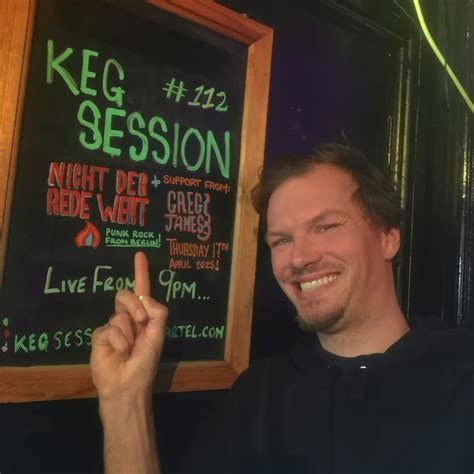 KEG
#112
SESSION
NICHT DER
REDE WERT
PUNK ROCK
FROM BERLIN!
+ SUPPORT FROM:
GREG
JAMES
THURSDAY 17TH
APRIL 2025!
LIVE FROM 9PM...
KEG SESS
ARTEL.COM